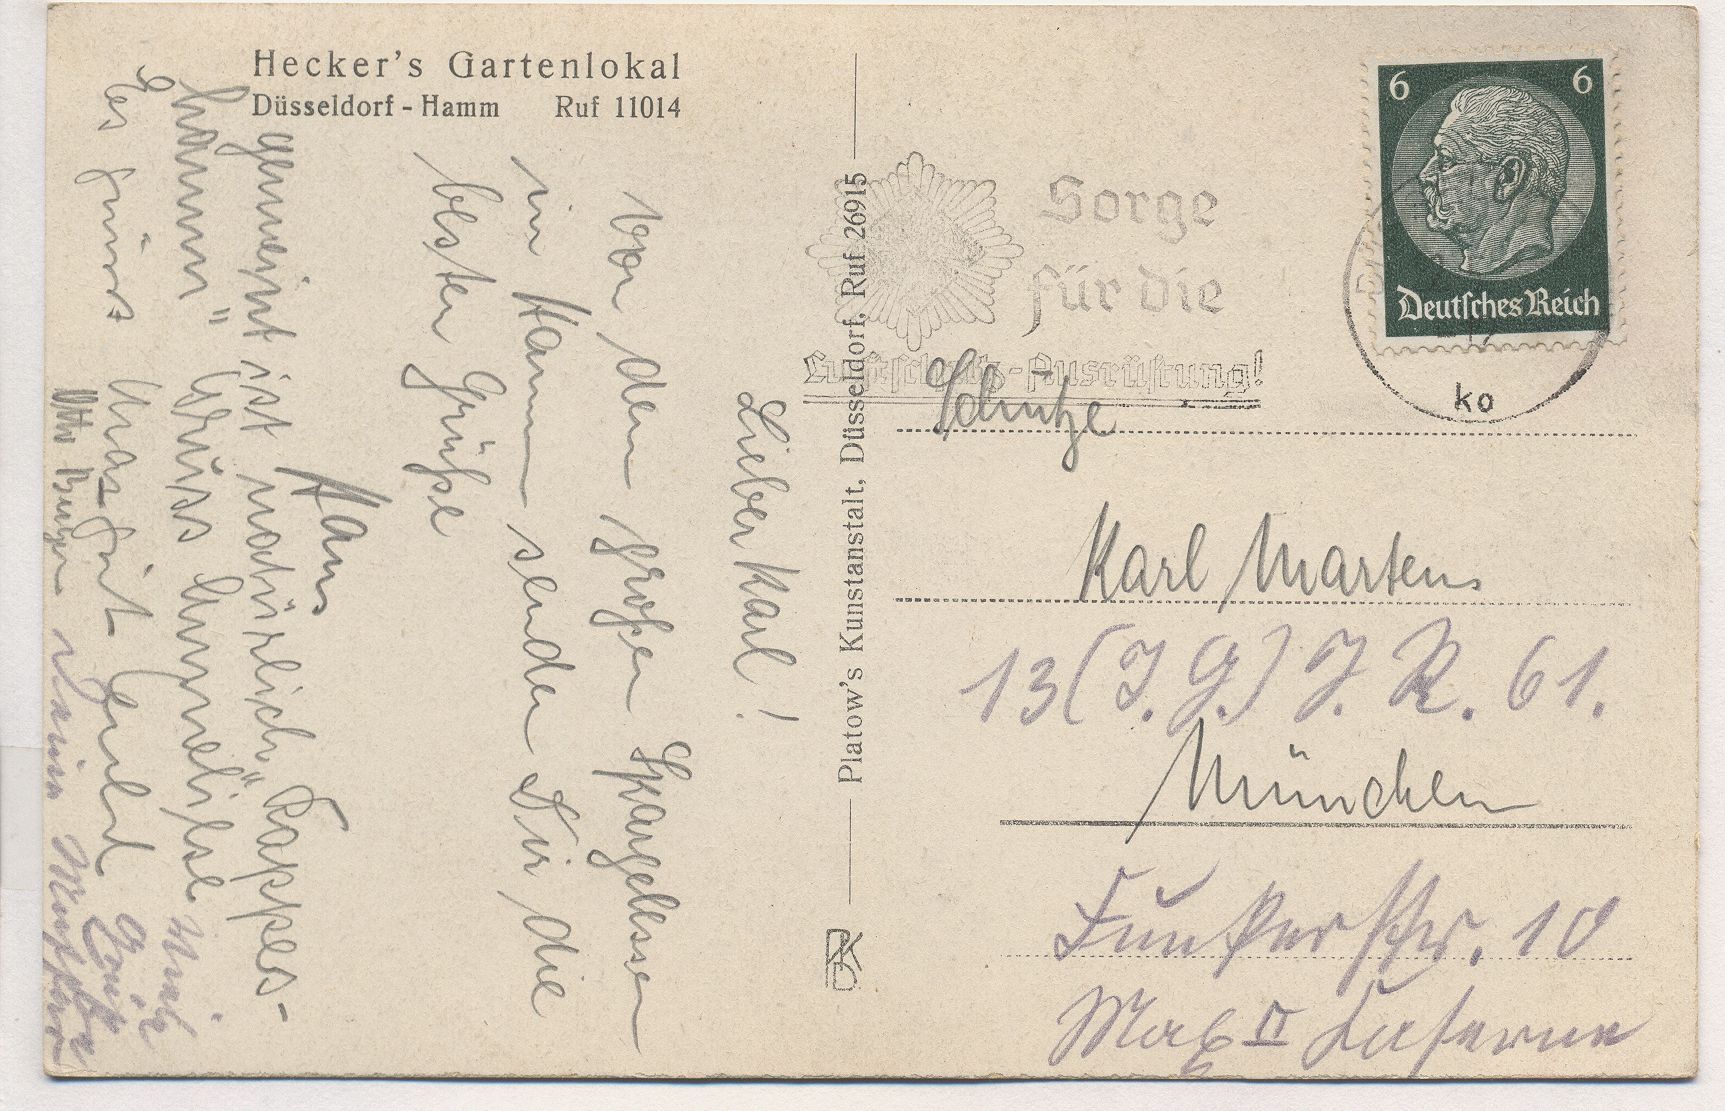 Hecker's Gartenlokal
Düsseldorf - Hamm Ruf 11014
Lieber Karl!
Von dem großen Spargelessen
in Hamm sende Dir die
besten Grüße
Hans
gemeint ist natürlich „Kappes-
hamm" Gruss Anneliese
Otto
Platow's Kunstanstalt, Düsseldorf, Ruf 26915
PKD
Sorge
für die
Luftschutz-Ausrüstung!
6 6
Deutsches Reich
ko
Schütze
Karl Martens
13 (I.G.) J. R. 61.
München
Funkerstr. 10
Max II Kaserne